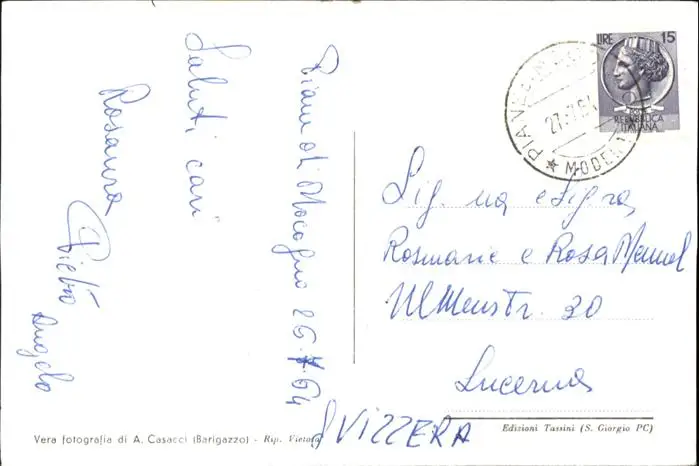 Pian di Mocogno 26.7.64
Saluti cari
Rosanna
Pietro
Angelo
LIRE 15
POSTE
REPUBBLICA
ITALIANA
27.7.64
MODENA
Sig.na e Sig.ra
Rosmarie e Rosa Mennel
Ulmenstr. 30
Lucerna
SVIZZERA
Vera fotografia di A. Casacci (Barigazzo) - Rip. Vietata
Edizioni Tassini (S. Giorgio PC)